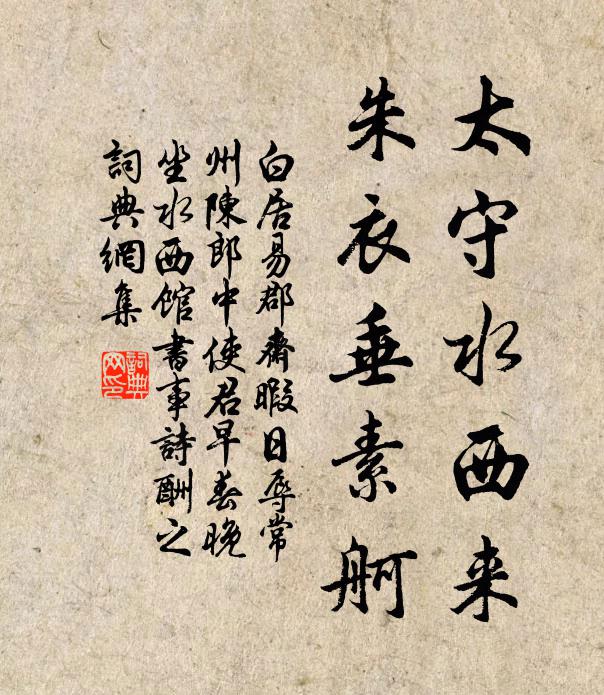 太守水西来
朱衣垂素舸
白居易郡齋暇日辱常
州陳郎中使君早春晚
坐水西館書事詩酬之
詞典網集
詞典
网印